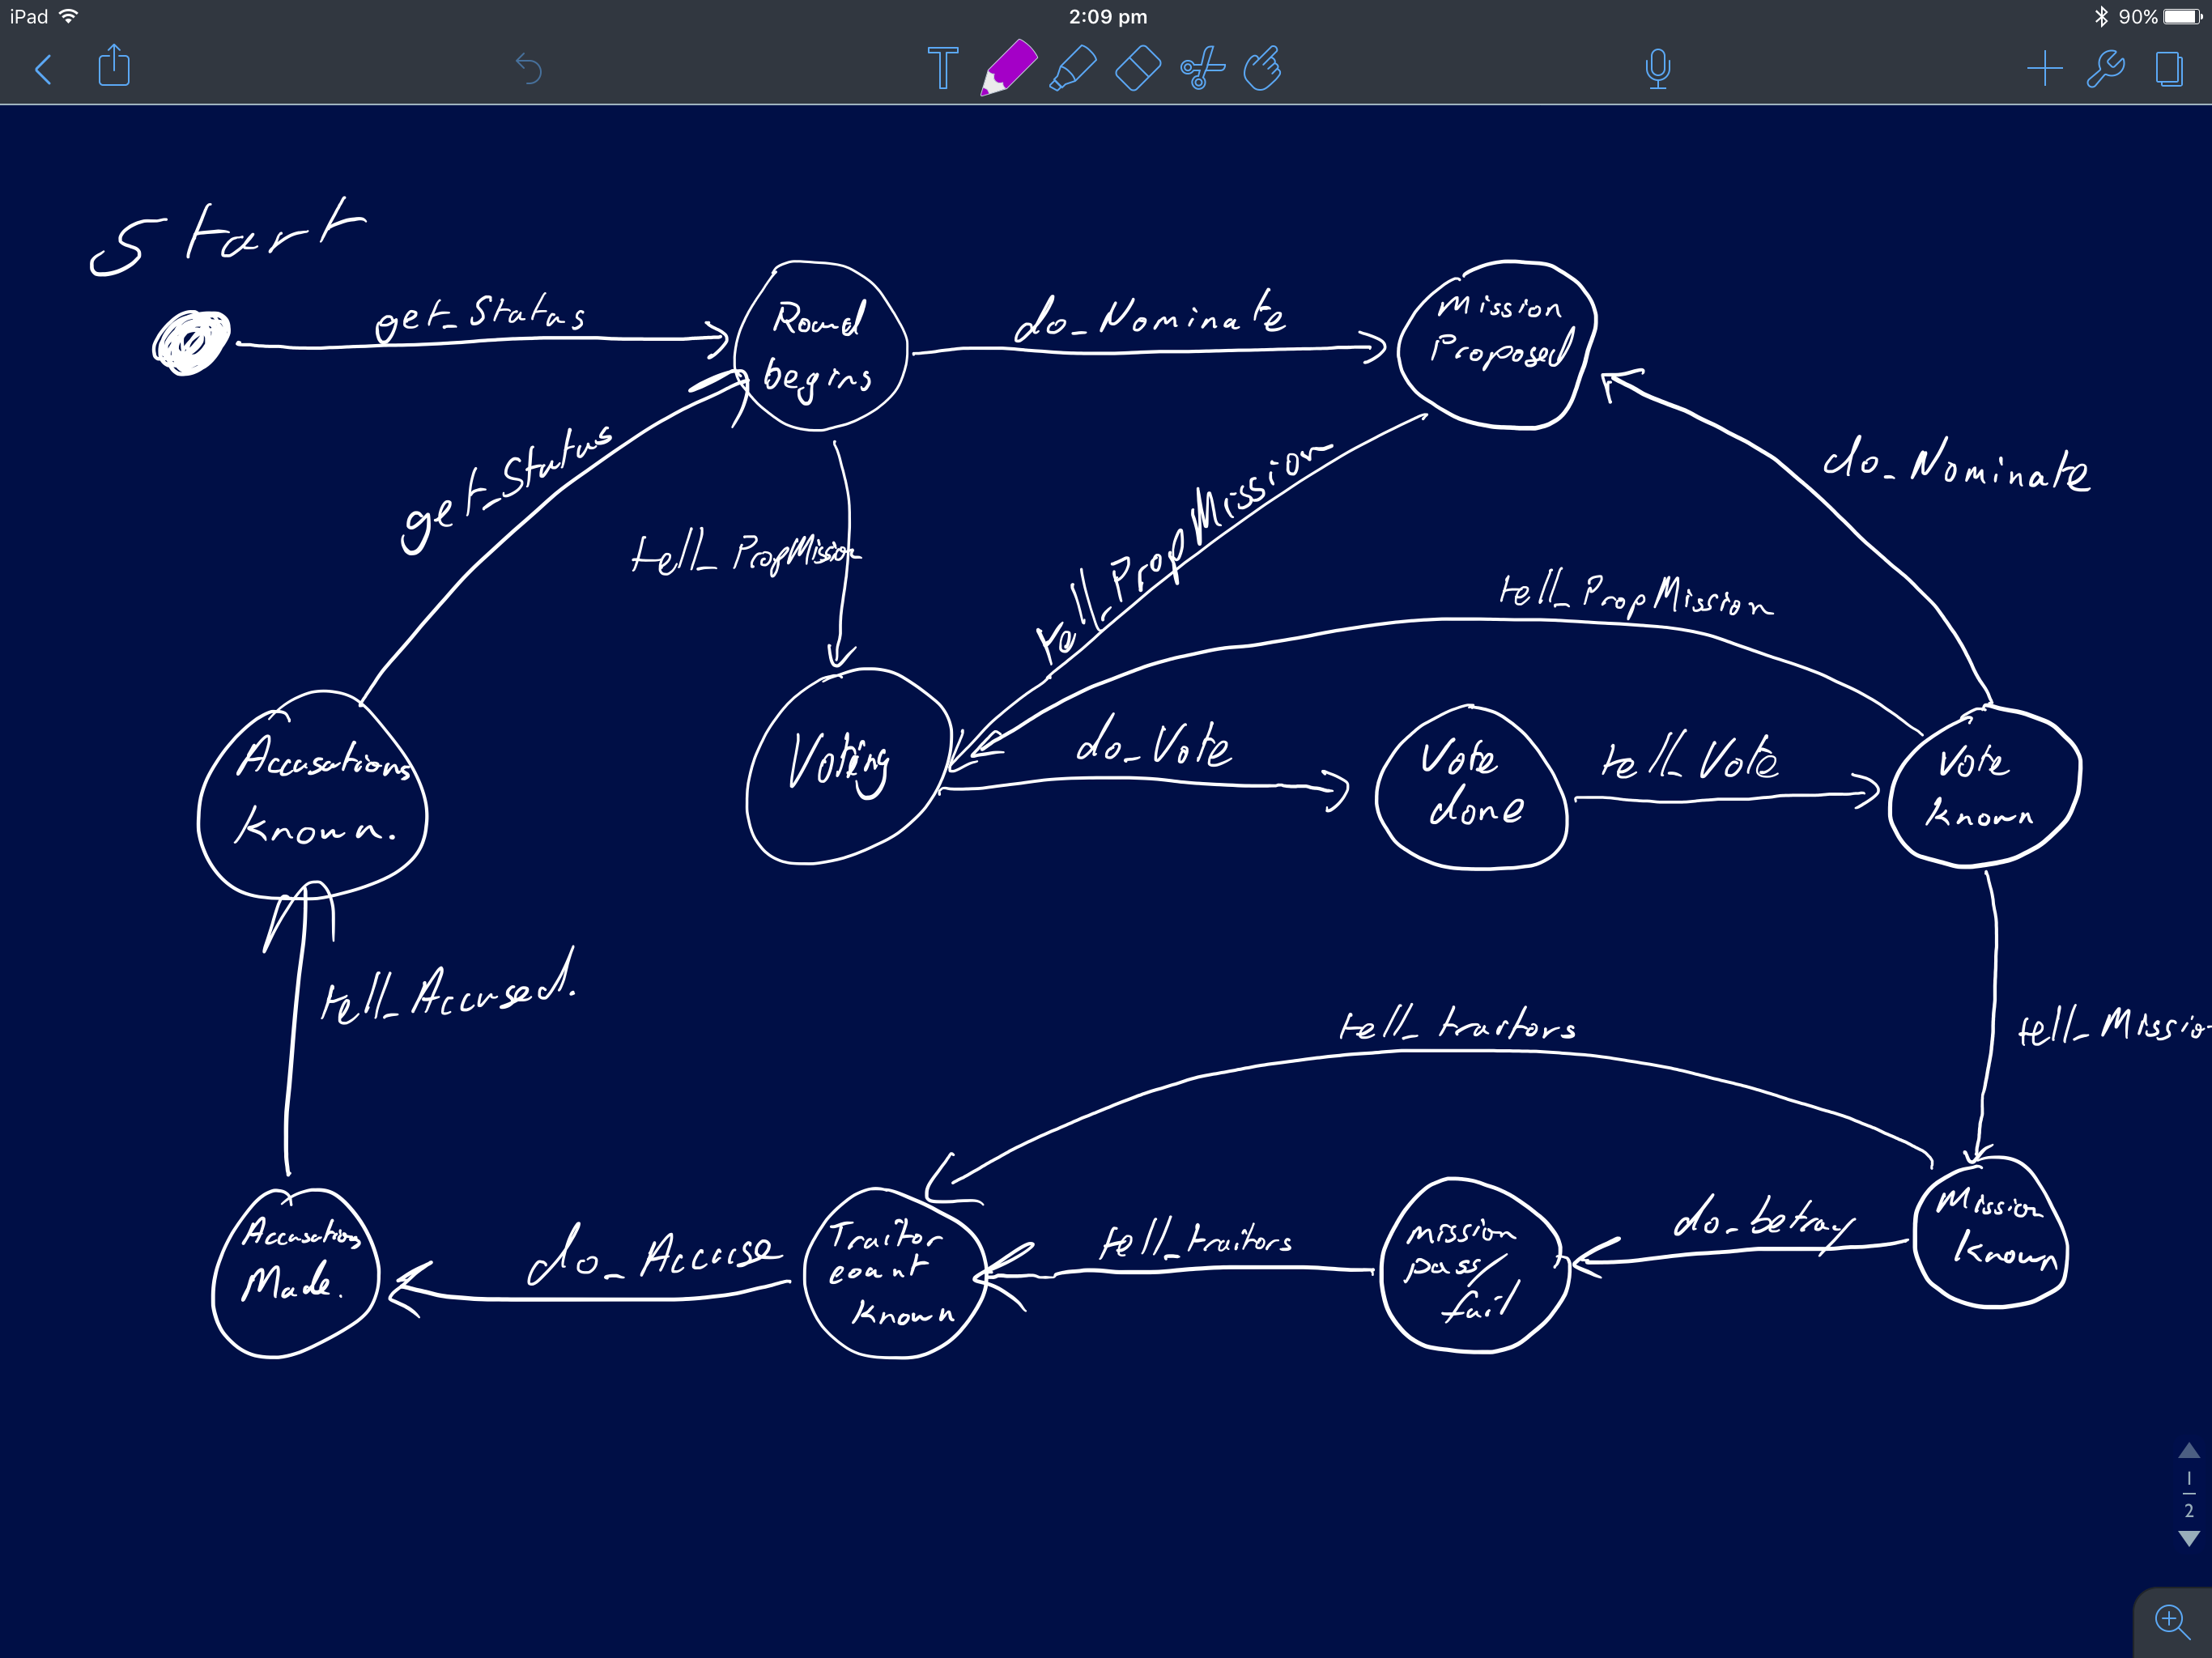 iPad
2:09 pm
90%
T
Start
get_Status
Round
begins
do_Nominate
Mission
Proposed
get_Status
tell_PropMission
tell_PropMission
do_Nominate
tell_PropMission
Accusations
Known.
Voting
do_Vote
Vote
done
tell_Vote
Vote
Known
tell_Accused.
tell_traitors
tell_Missio
Accusation
Made.
do_Accuse
Traitor
count
Known
tell_traitors
Mission
pass/
fail
do_betray
Mission
Known
1
2